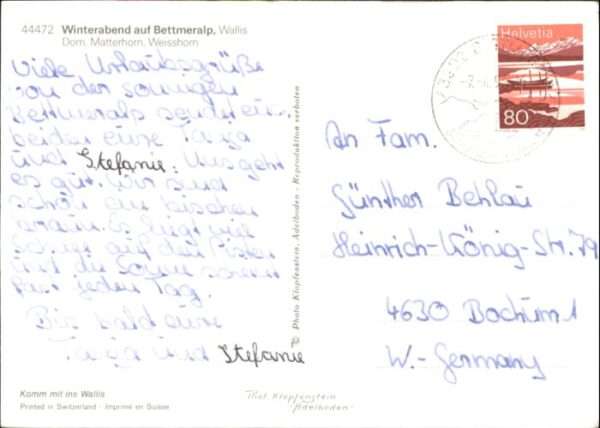 44472 Winterabend auf Bettmeralp, Wallis
Dom, Matterhorn, Weisshorn
Viele Urlaubsgrüße
von der sonnigen
Bettmeralp
eure Tanja
und Stefanie. Uns geht
es gut. Wir sind
schon ein bischen
braun. Es liegt viel
Schnee auf den Pisten
und die Sonne scheint
fast jeden Tag.
Bis bald eure
Tanja und Stefanie
Komm mit ins Wallis
Printed in Switzerland - Imprimé en Suisse
© Photo Klopfenstein, Adelboden - Reproduktion verboten
Phot. Klopfenstein
Adelboden
Helvetia
80
An Fam.
Günther Behlau
Heinrich-König-Str. 79
4630 Bochum 1
W.-Germany